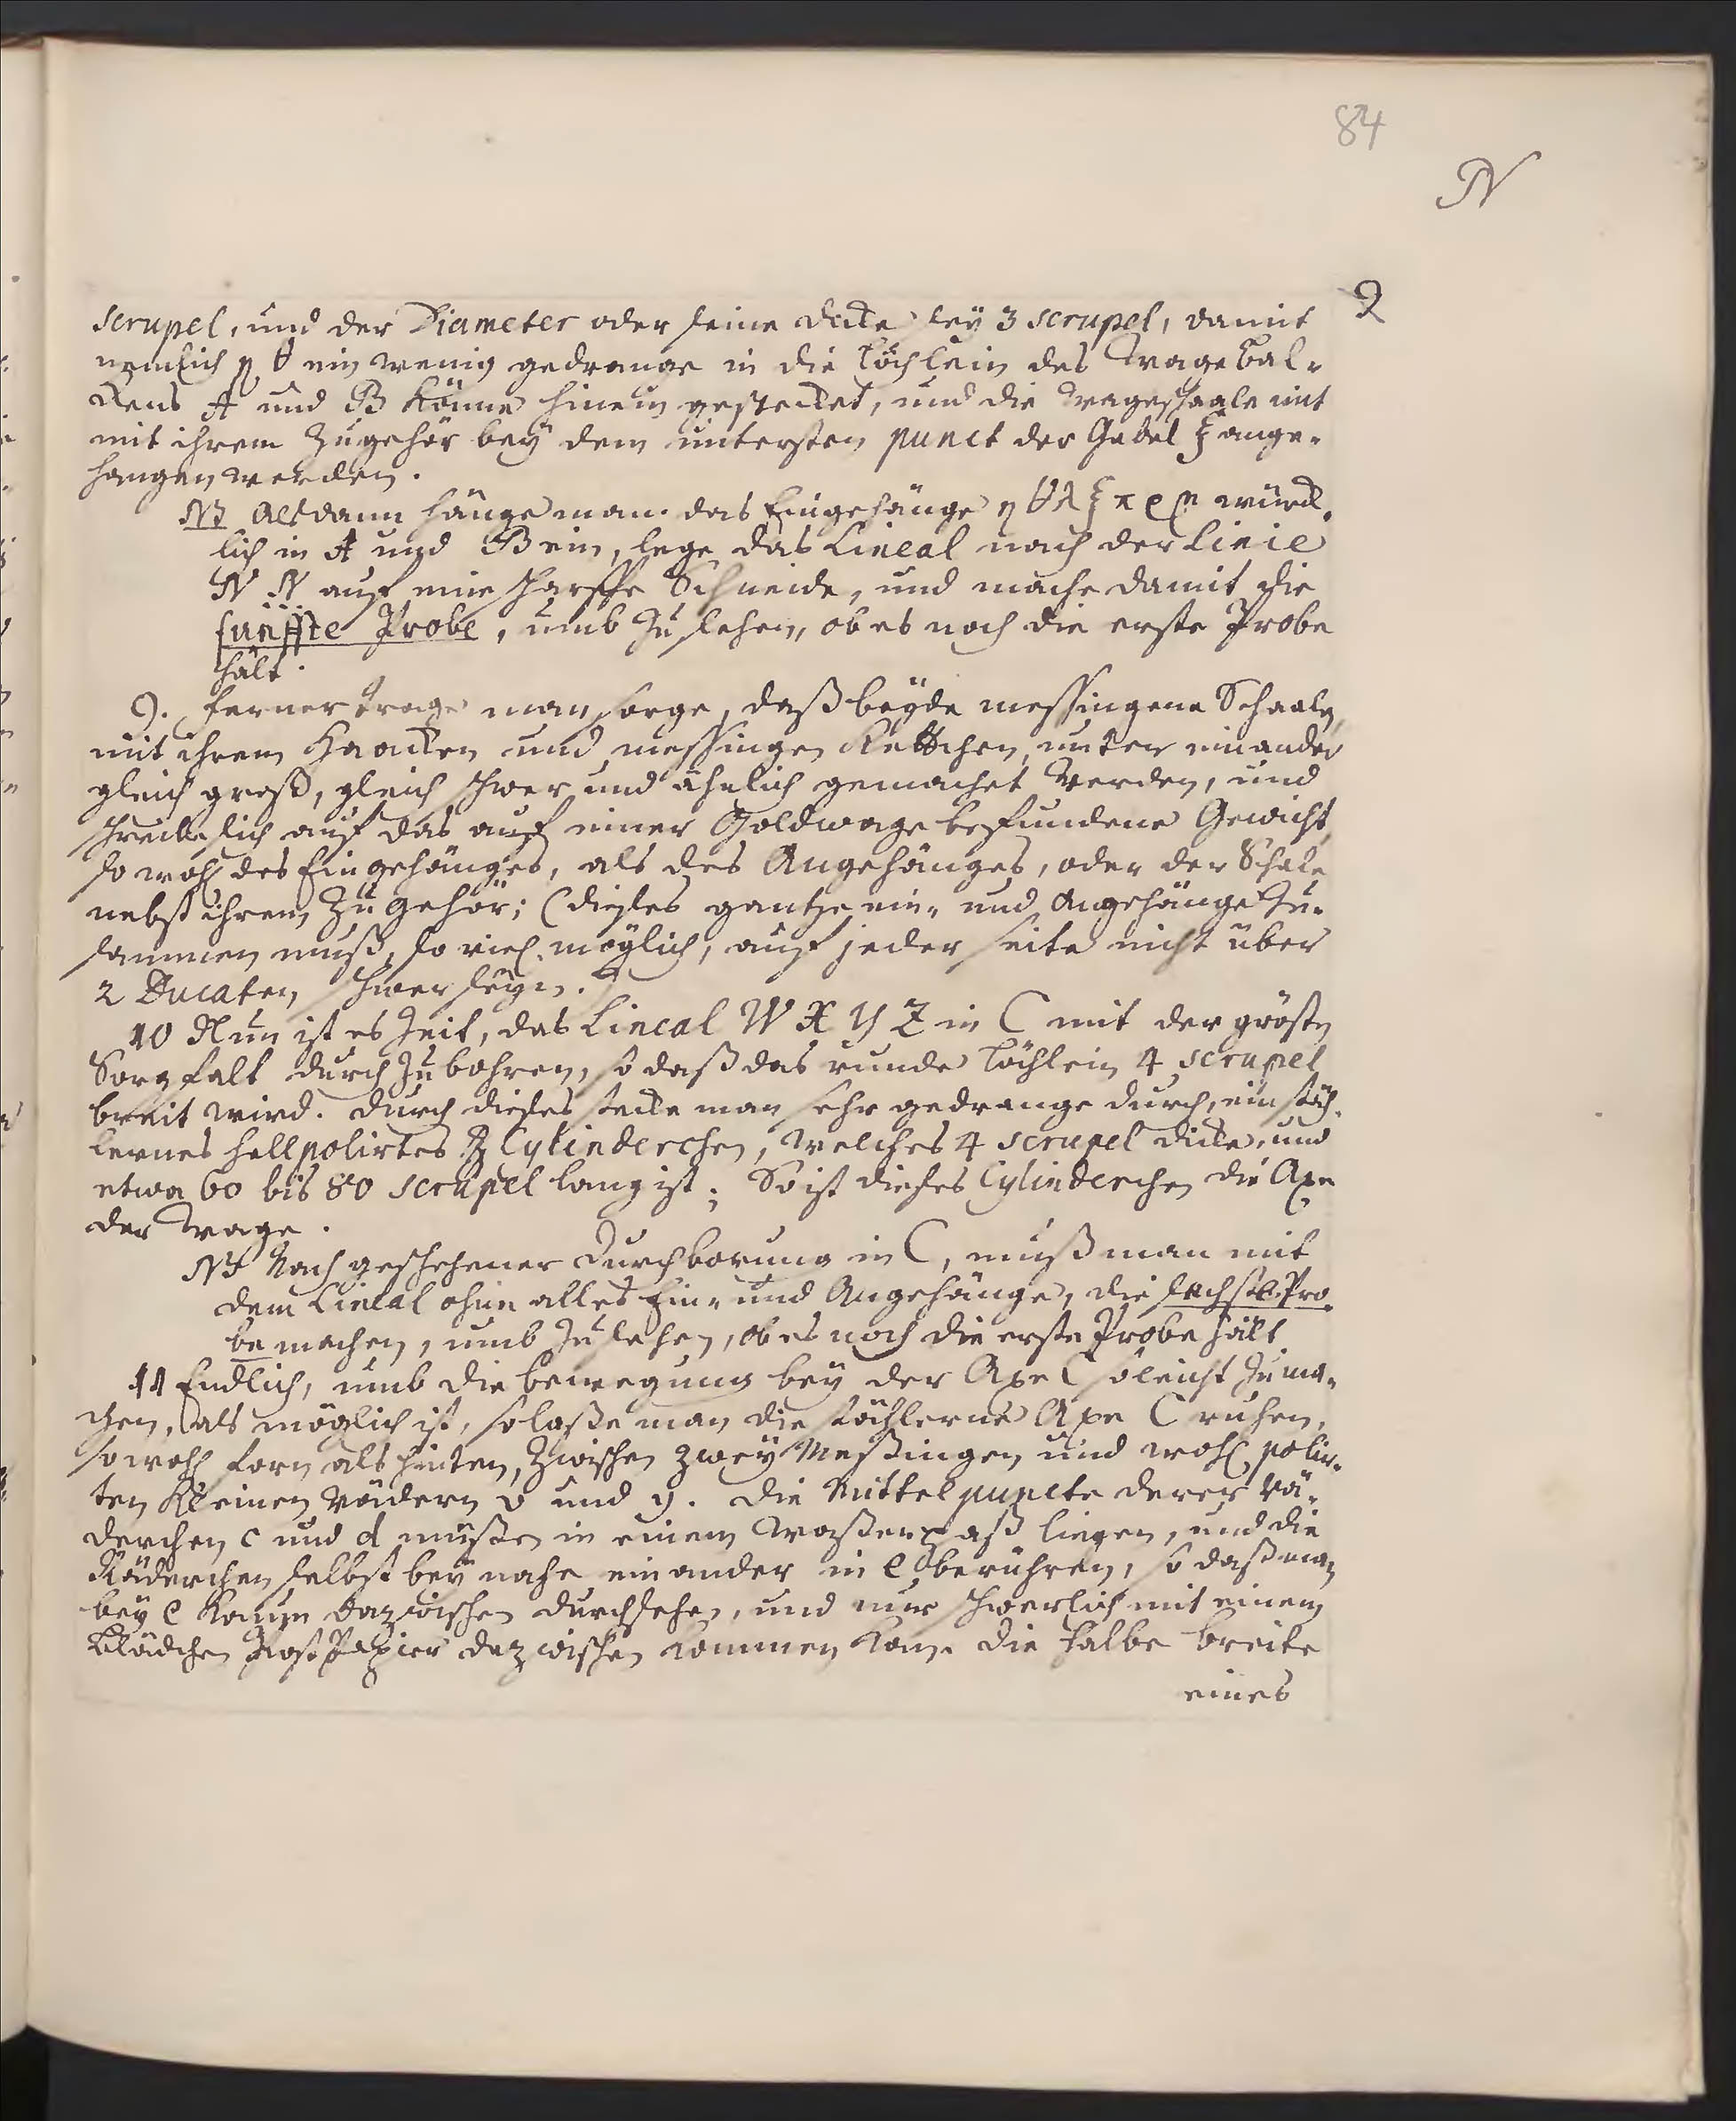 84
N
2
scrupel, und der Diameter oder seine dicke sey 3 scrupel, damit
nemlich η θ ein wenig gedrange in die Löchlein des Wagebal-
ckens A und B könne hinein gestecket, und die Wageschaale mit
mit ihrem Zugehör bey dem untersten punct der Gabel ξ ange-
hangen werden.
NB Alsdann hänge man das Eingehänge η θ λ ξ π ρ würck-
lich in A und B ein, lege das Lineal nach der Linie
N N auf eine scharffe Schneide, und mache damit die
fünffte Probe, umb zu sehen, ob es noch die erste Probe
hält.
9. Ferner trage man sorge, daß beyde messingene Schaalen
mit ihrem Haacken und messingen Kettchen unter einander
gleich groß, gleich schwer und ähnlich gemachet werden, und
schreibe sich auf das auf einer Goldwage befundene Gewicht
so wohl des Eingehänges, als des Angehänges, oder der Schale
nebst ihrem Zugehör; (dieses gantze ein- und Angehänge zu-
sammen muß, so viel möglich, auf jeder seite nicht über
2 Ducaten schwer seyn.)
10 Nun ist es Zeit, das Lineal W X Y Z in C mit der grösten
Sorgfalt durch zu bohren, so daß das runde Löchlein 4 scrupel
breit wird. durch dieses stecke man sehr gedrange durch, ein stäh-
lernes hellpolirtes Cylinderchen, welches 4 scrupel dicke, und
etwa 60 bis 80 scrupel lang ist; So ist dieses Cylinderchen die Axe
der Wage.
NB Nach geschehener durchborung in C, muß man mit
dem Lineal ohne alles Ein- und Angehänge, die sechste Pro-
be machen, umb zu sehen, ob es noch die erste Probe hält
11 Endlich, umb die bewegung bey der Axe C so leicht zu ma-
chen, als möglich ist, so laße man die stählerne Axe C ruhen,
so wohl forn als hinten, zwischen zwey Meßingen und wohl polir-
ten kleinen rädern v und y. die Mittelpuncte derer rä-
derchen c und d müßen in einem waßerpaß liegen, und die
Räderchen selbst bey nahe einander in e berühren, so daß man
bey e kaum dazwischen durchsehen, und nur schwerlich mit einem
blädchen Post Papier dazwischen kommen kan. die halbe breite
eines